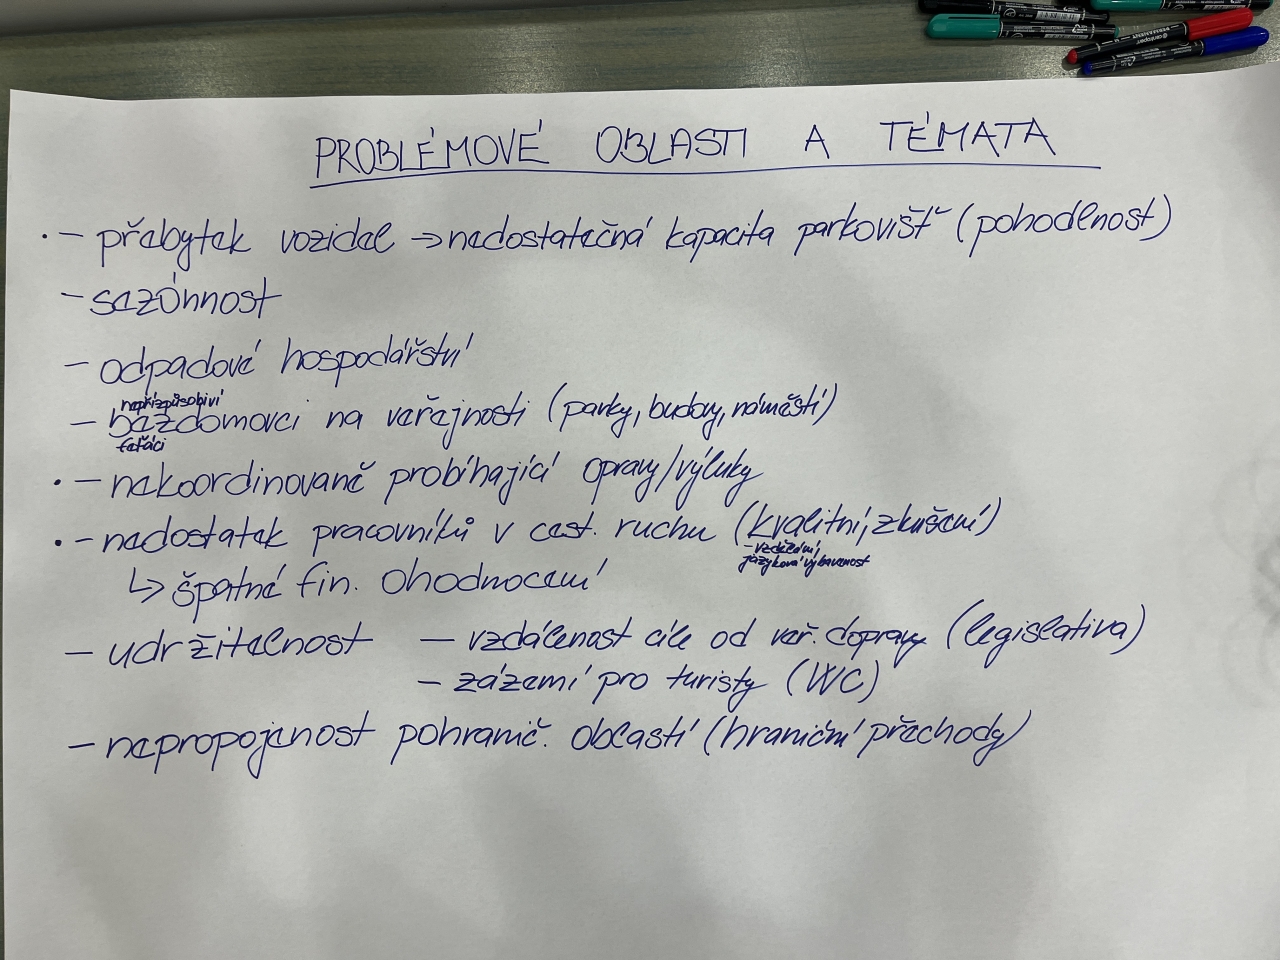 PROBLÉMOVÉ OBLASTI A TÉMATA
· – přebytek vozidel → nedostatečná kapacita parkovišť (pohodlnost)
– sezónnost
– odpadové hospodářství
nepřizpůsobiví
– bezdomovci na veřejnosti (parky, budovy, náměstí)
feťáci
· – nekoordinovaně probíhající opravy/výluky
· – nedostatek pracovníků v cest. ruchu (kvalitní, zkušení)
– vzdělání,
jazyková vybavenost
↳ špatné fin. ohodnocení
– udržitelnost – vzdálenost cíle od veř. dopravy (legislativa)
– zázemí pro turisty (WC)
– nepropojenost pohranič. oblastí (hraniční přechody)